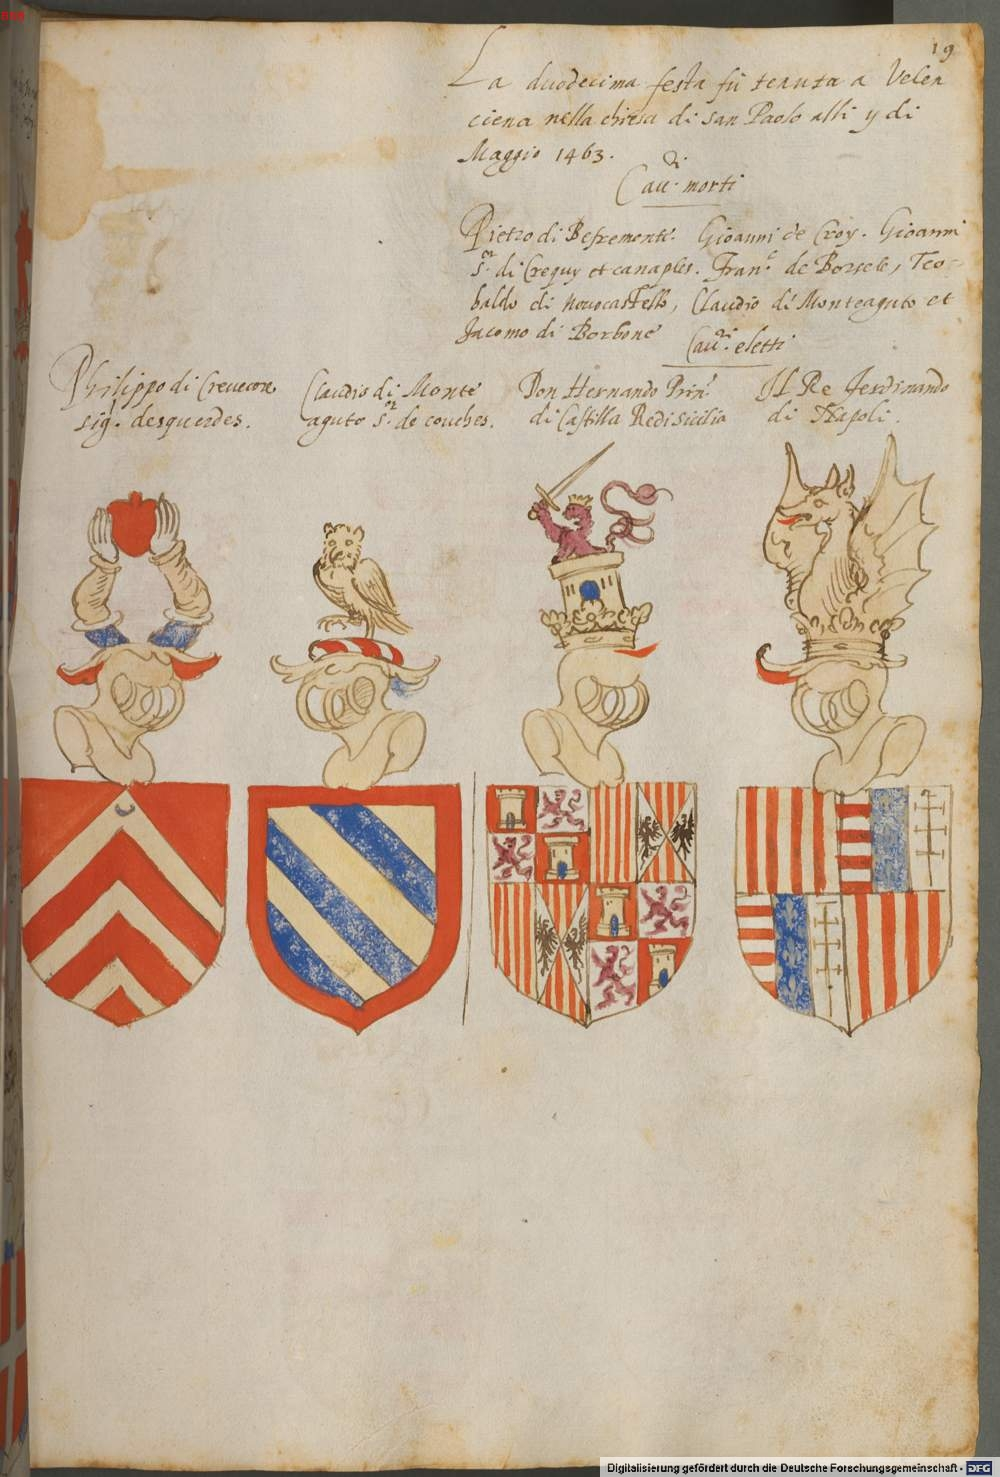 19
La duodecima festa fù tenuta a Velen
ciena nella chiesa di san Paolo alli y di
Maggio 1463.
Cau.ri morti
Pietro di Befremente. Gioanni de Croy. Gioanni
S.or di Crequy et canaples. Fran.c de Borsele, Teo-
baldo di novocastello, Claudio di Monteaguto et
Jacomo di Borbone
Cau.ri eletti
Philippo di Crevecore
sig.r desquerdes.
Claudio di Monte
aguto S.or de couches.
Don Hernando Prin.e
di Castilla Re di Sicilia
Il Re Ferdinando
di Napoli.
Digitalisierung gefördert durch die Deutsche Forschungsgemeinschaft - DFG